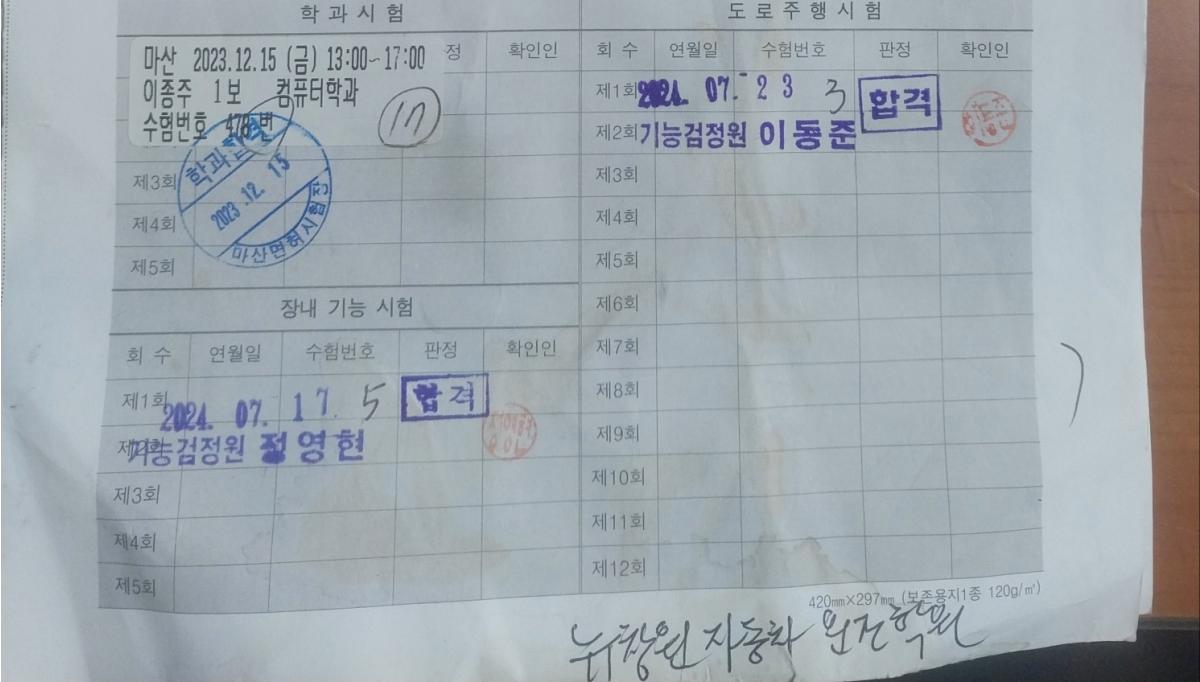 학 과 시 험
정 확인인
마산 2023.12.15 (금) 13:00~17:00
이종주 1보 컴퓨터학과
수험번호 478번
17
학과합격
2023.12.15
마산면허시험장
제3회
제4회
제5회
장내 기능 시험
회 수 연월일 수험번호 판정 확인인
제1회 2024. 07. 17. 5 합격
제2회 기능검정원 정영헌
제3회
제4회
제5회
도 로 주 행 시 험
회 수 연월일 수험번호 판정 확인인
제1회 2024. 07. 23 3 합격
제2회 기능검정원 이동준
제3회
제4회
제5회
제6회
제7회
제8회
제9회
제10회
제11회
제12회
420㎜×297㎜ (보존용지1종 120g/㎡)
뉴창원자동차운전학원